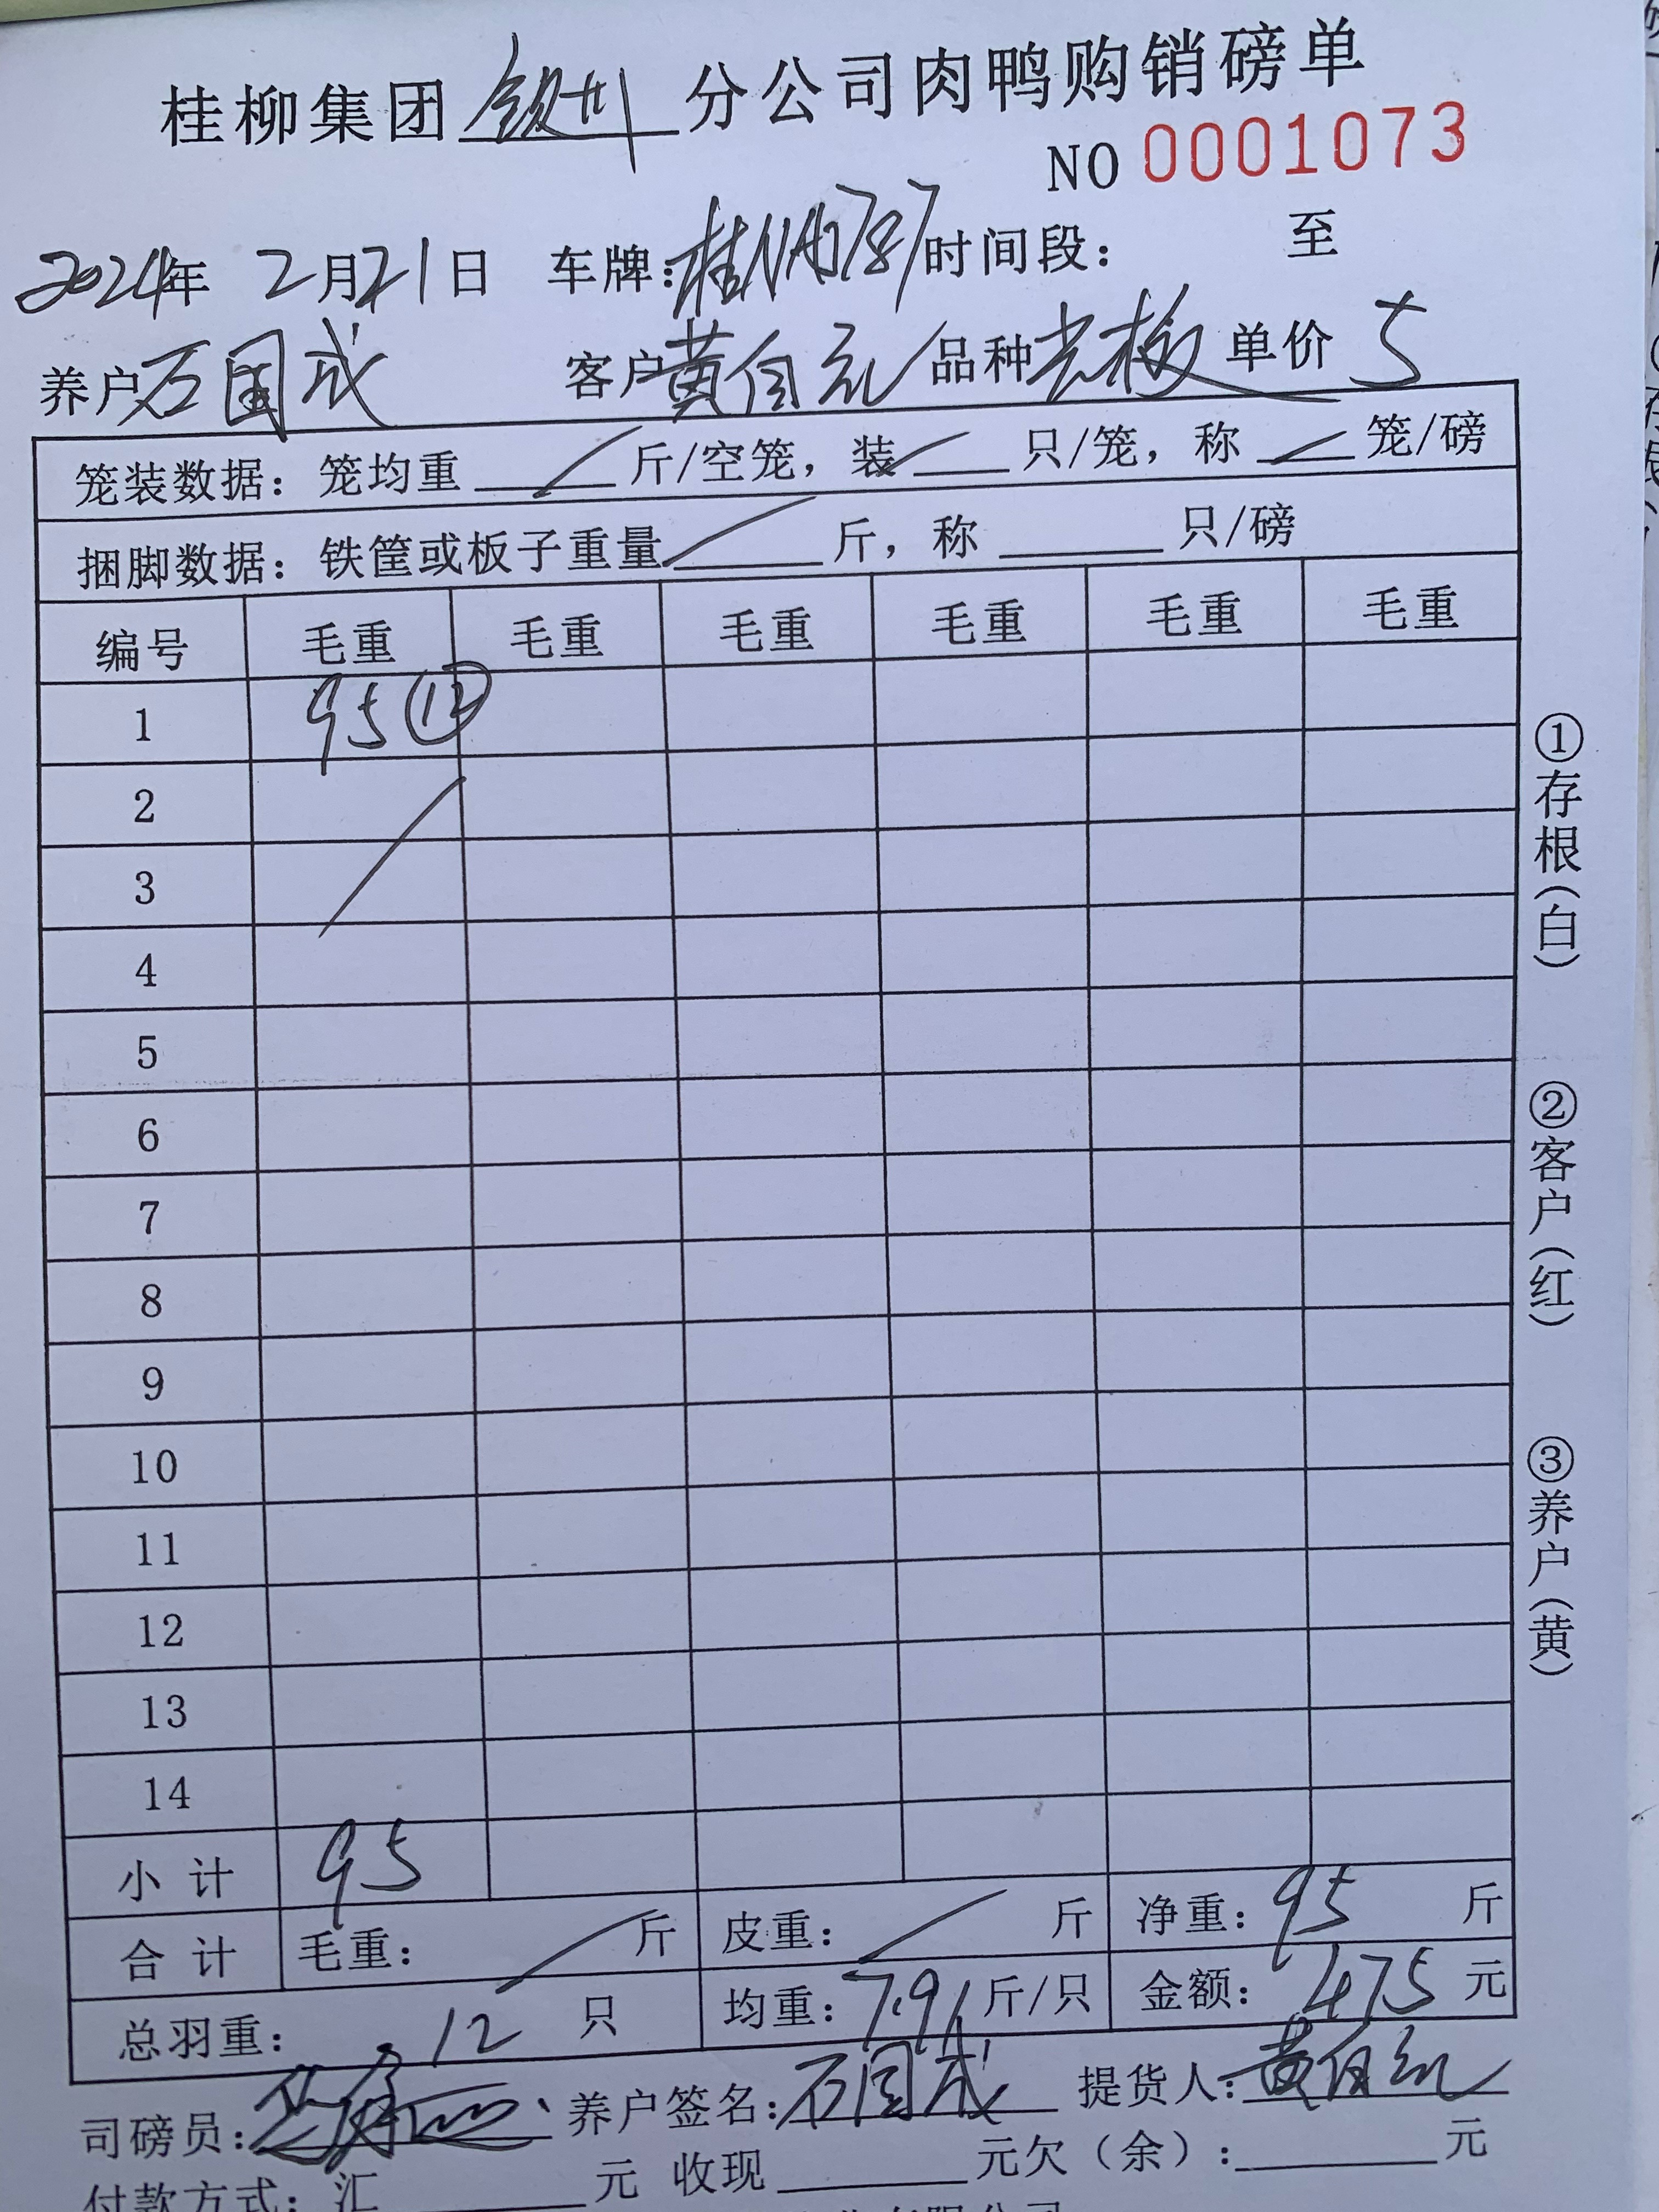 桂柳集团 钦州 分公司肉鸭购销磅单
NO 0001073
2024年 2月21日 车牌: 桂 787 时间段: 至
养户 石国成 客户 黄自 品种 老板 单价 5
笼装数据: 笼均重 斤/空笼, 装 只/笼, 称 笼/磅
捆脚数据: 铁筐或板子重量 斤, 称 只/磅
编号 毛重 毛重 毛重 毛重 毛重 毛重
1 95 ⑫
2
3
4
5
6
7
8
9
10
11
12
13
14
小计 95
合计 毛重: 斤 皮重: 斤 净重: 95 斤
总羽重: 12 只 均重: 7.91 斤/只 金额: 475 元
司磅员: 养户签名: 石国成 提货人: 黄自
付款方式: 汇 元 收现 元欠(余): 元
①存根(白)
②客户(红)
③养户(黄)